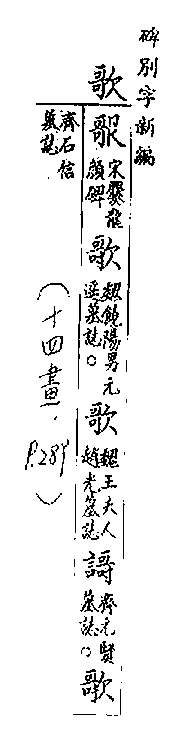 碑別字新編
歌
㰤 宋爨龍顏碑 歌 魏饒陽男元遥墓誌。 歌 魏王夫人趙光墓誌 謌 齊元賢墓誌。 歌
齊石信墓誌
(十四畫.P.289)